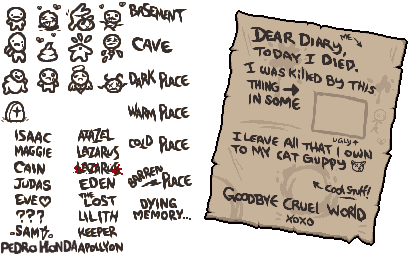 BASEMENT
CAVE
DARK PLACE
WARM PLACE
COLD PLACE
BARREN PLACE
DYING
MEMORY...
ISAAC
MAGGIE
CAIN
JUDAS
EVE
???
SAMS
PEDRO HONDA
AZAZEL
LAZARUS
LAZARUS
EDEN
THE
LOST
LILITH
KEEPER
APOLLYON
DEAR DIARY,
ME
TODAY I DIED.
I WAS KILLED BY THIS
THING
IN SOME
UGLY
I LEAVE ALL THAT I OWN
TO MY CAT GUPPY
COOL STUFF!
GOODBYE CRUEL WORLD
XOXO